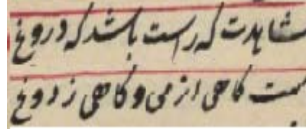 شاهدت که راست باشد که دروغ
مست کاهی از می و کاهی ز دوغ